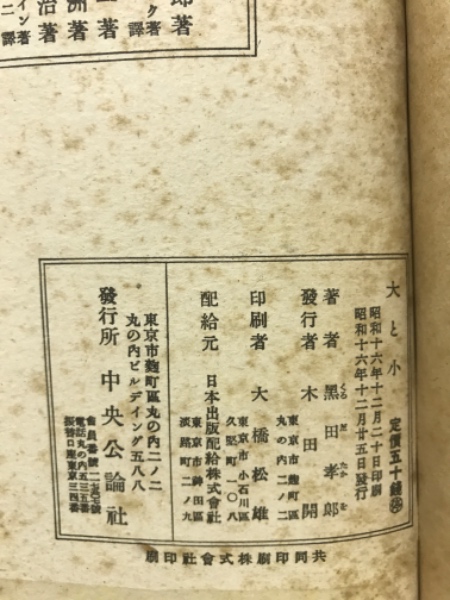 郎著
ク譯
一著
洲著
治著
イン著
二譯
大と小
定價五十錢
昭和十六年十二月二十日印刷
昭和十六年十二月廿五日發行
著者 黑田孝郎
くろ だ たか を
發行者 木田開
東京市麴町區
丸の内二ノ二
印刷者 大橋松雄
東京市小石川區
久堅町一〇八
配給元 日本出版配給株式會社
東京市神田區
淡路町二ノ九
東京市麴町區丸の内二ノ二
丸の内ビルデイング五八八
發行所 中央公論社
電話丸の内五三五番
振替口座東京三四番
共同印刷株式會社印刷